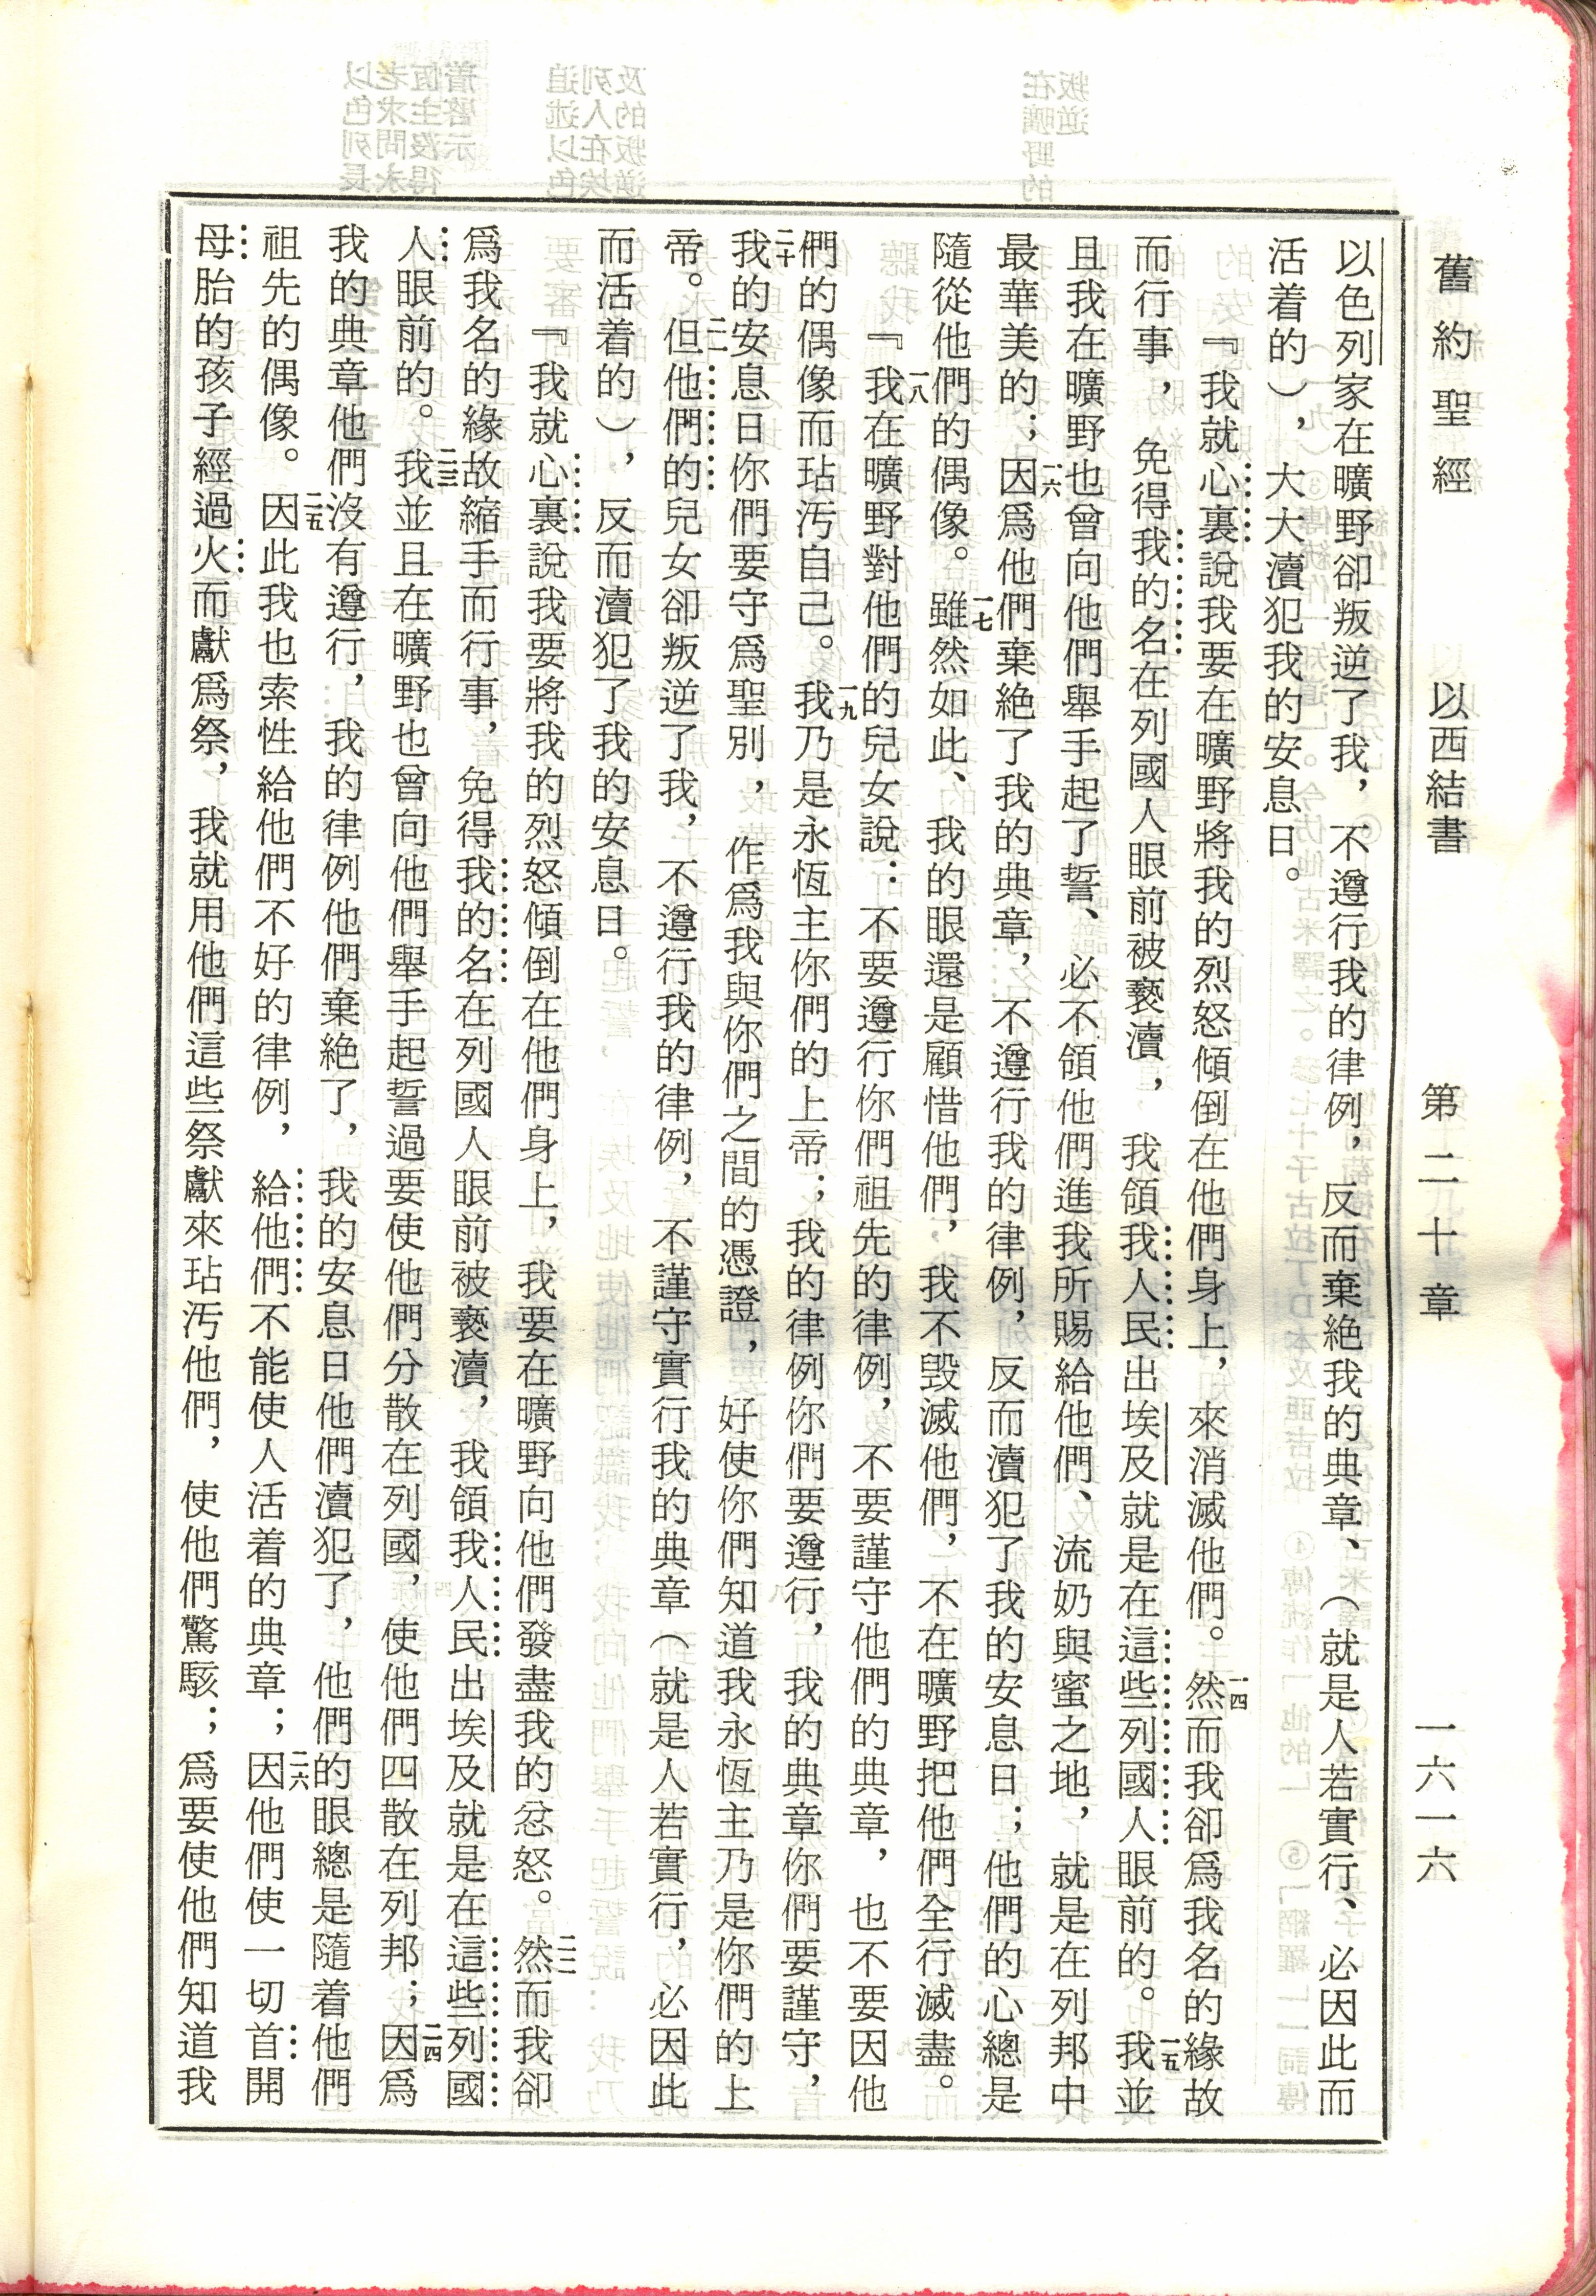 舊約聖經　以西結書　第二十章　一六一六
以色列家在曠野卻叛逆了我，不遵行我的律例，反而棄絕我的典章、（就是人若實行、必因此而
活着的），大大瀆犯我的安息日。
『我就心裏說我要在曠野將我的烈怒傾倒在他們身上，來消滅他們。一四然而我卻爲我名的緣故
而行事，免得我的名在列國人眼前被褻瀆，我領我人民出埃及就是在這些列國人眼前的。一五我並
且我在曠野也曾向他們舉手起了誓、必不領他們進我所賜給他們、流奶與蜜之地，就是在列邦中
最華美的；一六因爲他們棄絕了我的典章，不遵行我的律例，反而瀆犯了我的安息日；他們的心總是
隨從他們的偶像。一七雖然如此、我的眼還是顧惜他們，我不毀滅他們，不在曠野把他們全行滅盡。
『一八我在曠野對他們的兒女說：不要遵行你們祖先的律例，不要謹守他們的典章，也不要因他
們的偶像而玷污自己。一九我乃是永恆主你們的上帝；我的律例你們要遵行，我的典章你們要謹守，
二十我的安息日你們要守爲聖別，作爲我與你們之間的憑證，好使你們知道我永恆主乃是你們的上
帝。二一但他們的兒女卻叛逆了我，不遵行我的律例，不謹守實行我的典章（就是人若實行，必因此
而活着的），反而瀆犯了我的安息日。
『我就心裏說我要將我的烈怒傾倒在他們身上，我要在曠野向他們發盡我的忿怒。二二然而我卻
爲我名的緣故縮手而行事，免得我的名在列國人眼前被褻瀆，我領我人民出埃及就是在這些列國
人眼前的。二三我並且在曠野也曾向他們舉手起誓過要使他們分散在列國，使他們四散在列邦；二四因爲
我的典章他們沒有遵行，我的律例他們棄絕了，我的安息日他們瀆犯了，他們的眼總是隨着他們
祖先的偶像。二五因此我也索性給他們不好的律例，給他們不能使人活着的典章；二六因他們使一切首開
母胎的孩子經過火而獻爲祭，我就用他們這些祭獻來玷污他們，使他們驚駭；爲要使他們知道我